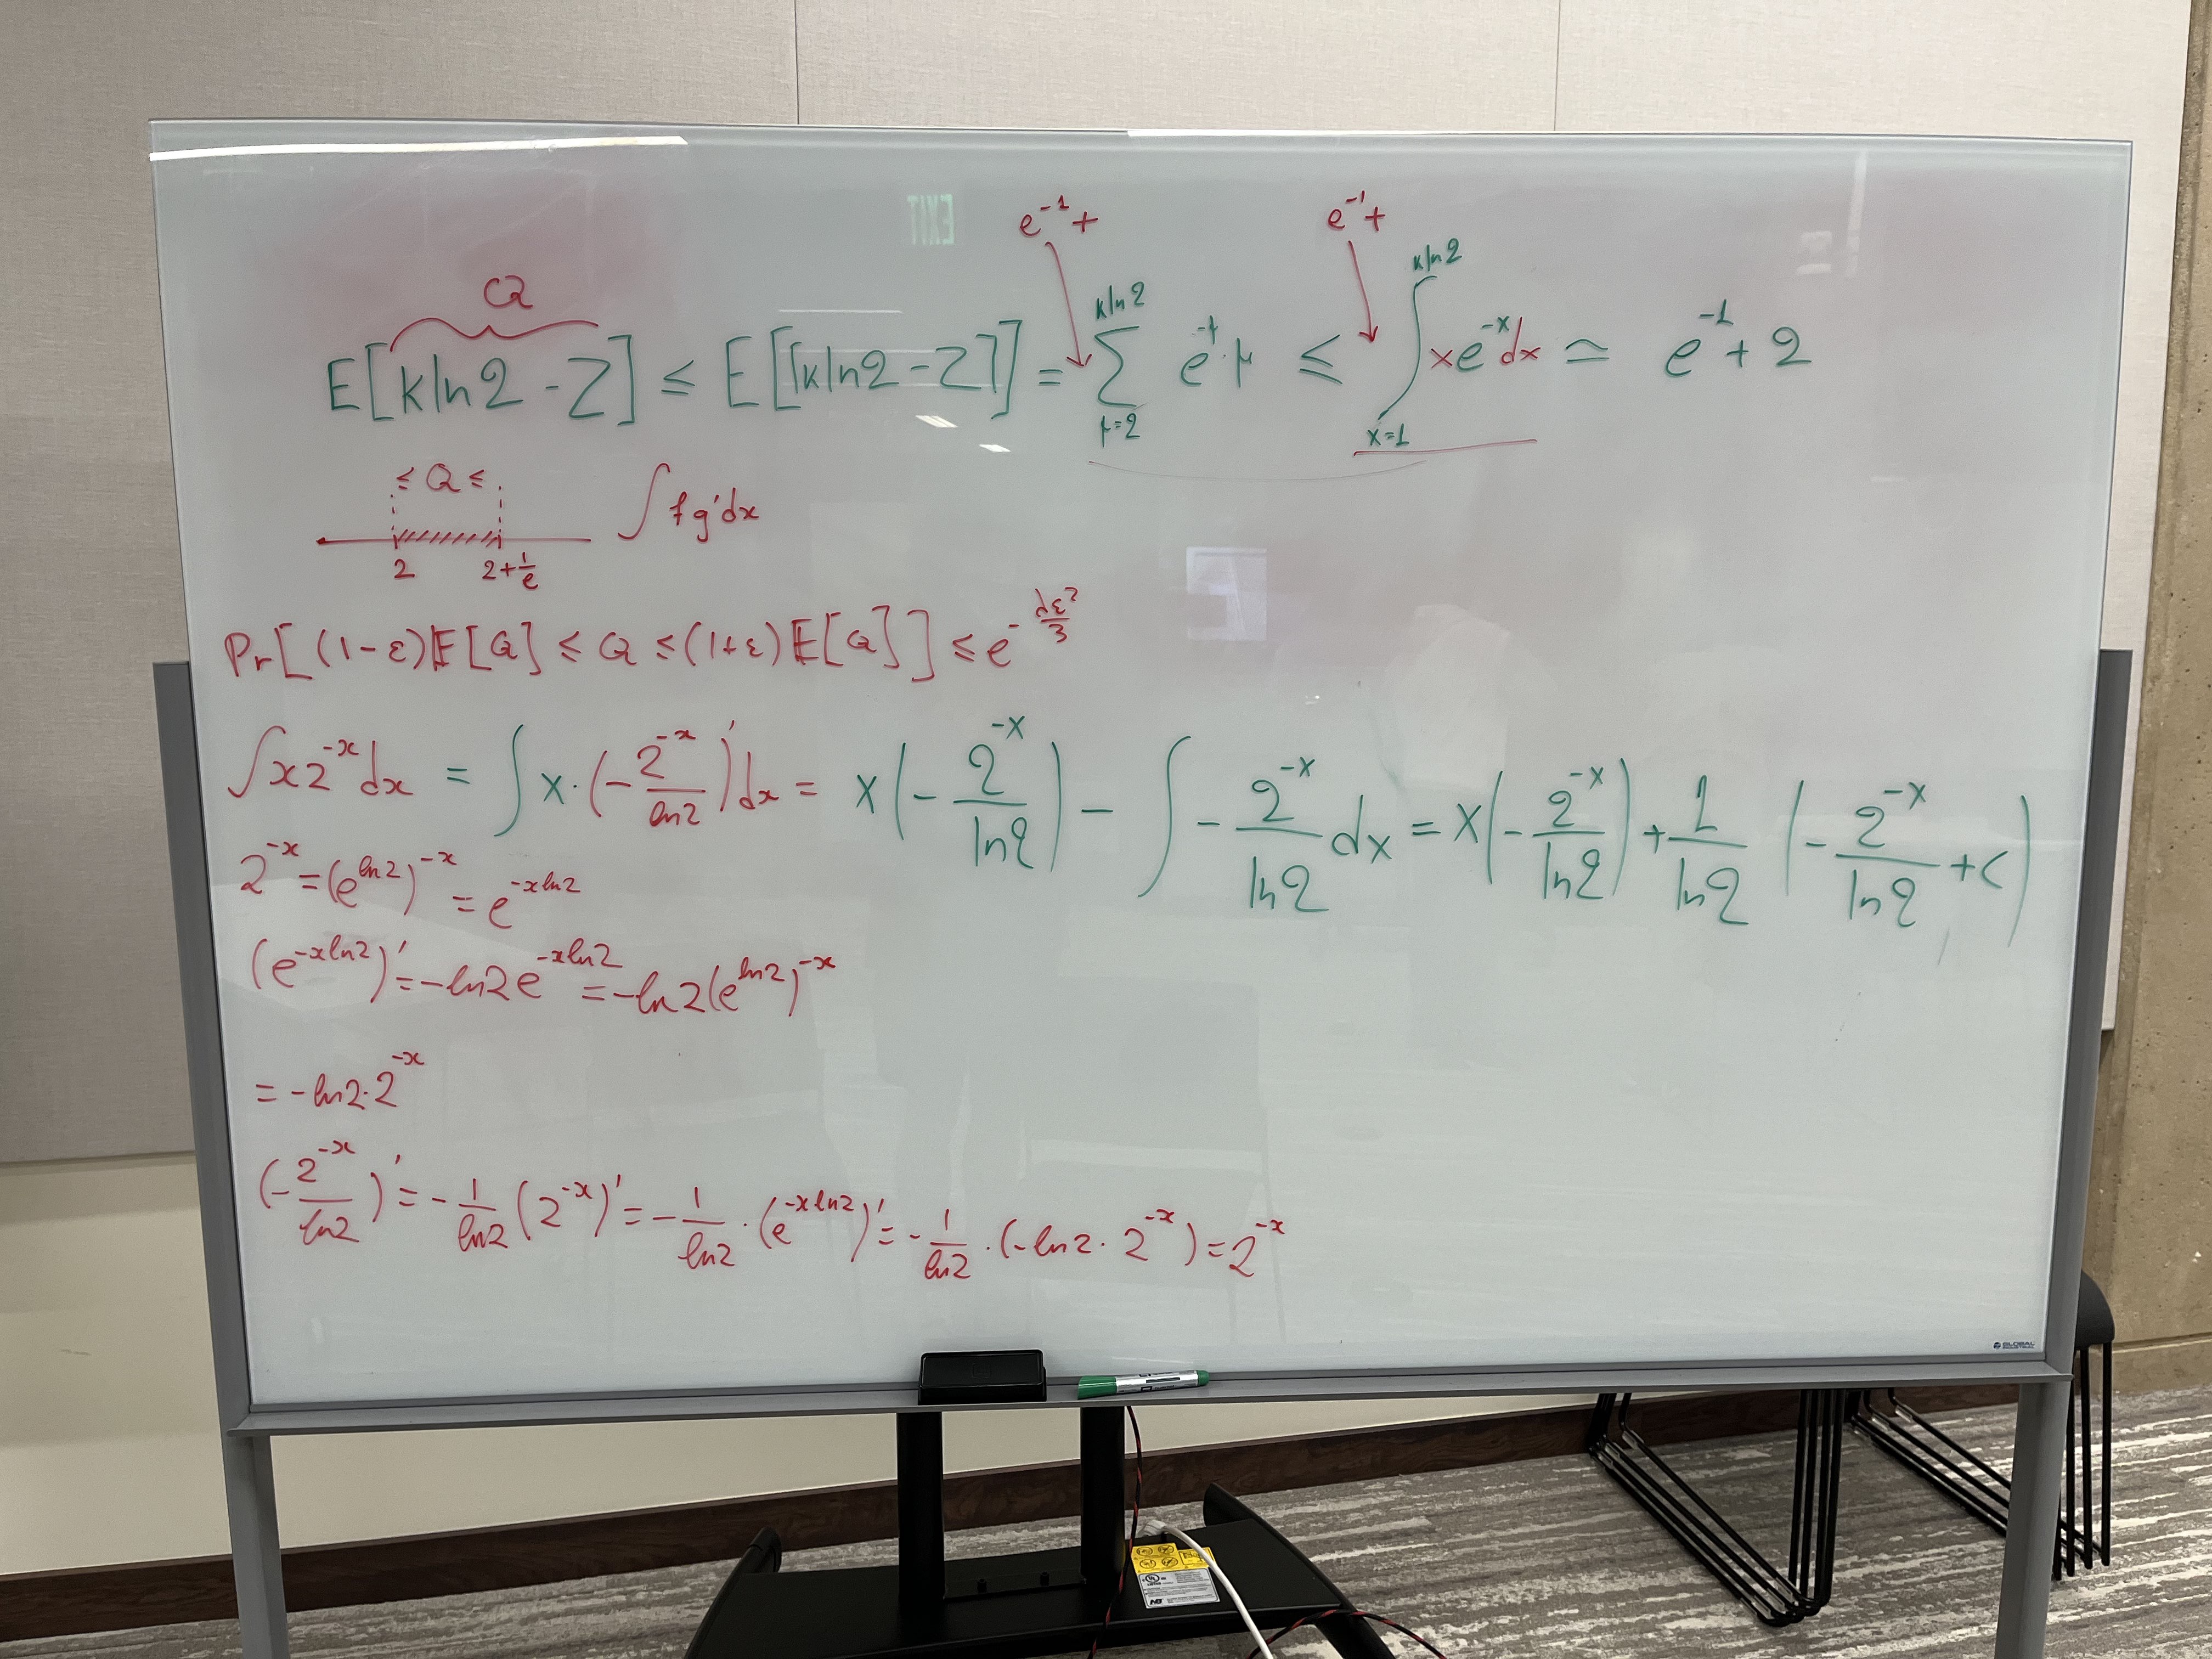 Q e⁻¹+ e⁻¹+
E[k ln2 - Z] ≤ E[⌈k ln2 - Z⌉] = ∑_{t=2}^{k ln2} e^{-t}·t ≤ ∫_{x=1}^{k ln2} x e^{-x} dx ≃ e^{-1} + 2
≤ Q ≤
∫ f g' dx
2 2+1/e
Pr[(1-ε)E[Q] ≤ Q ≤ (1+ε)E[Q]] ≤ e^{-dε²/3}
∫ x 2^{-x} dx = ∫ x·(-2^{-x}/ln2)' dx = x(-2^{-x}/ln2) - ∫ -2^{-x}/ln2 dx = x(-2^{-x}/ln2) + 1/ln2 (-2^{-x}/ln2 + c)
2^{-x} = (e^{ln2})^{-x} = e^{-x ln2}
(e^{-x ln2})' = -ln2 e^{-x ln2} = -ln2 (e^{ln2})^{-x}
= -ln2·2^{-x}
(-2^{-x}/ln2)' = -1/ln2 (2^{-x})' = -1/ln2 · (e^{-x ln2})' = -1/ln2 · (-ln2 · 2^{-x}) = 2^{-x}
EXIT
GLOBAL INDUSTRIAL